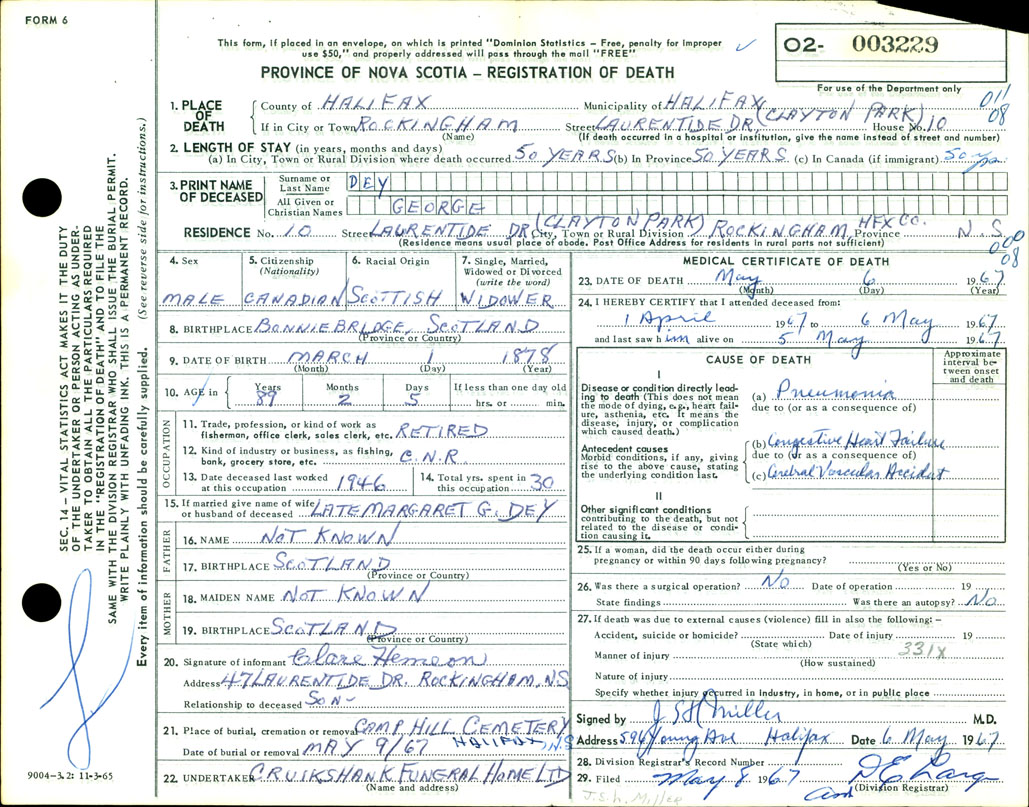 FORM 6
This form, if placed in an envelope, on which is printed "Dominion Statistics - Free, penalty for improper
use $50," and properly addressed will pass through the mail "FREE"
O2- 003229
PROVINCE OF NOVA SCOTIA - REGISTRATION OF DEATH
For use of the Department only
011
08
1. PLACE OF DEATH
County of HALIFAX Municipality of HALIFAX
If in City or Town ROCKINGHAM Street LAURENTIDE DR. (CLAYTON PARK) House No. 10
(Name) (If death occurred in a hospital or institution, give the name instead of street and number)
2. LENGTH OF STAY (in years, months and days)
(a) In City, Town or Rural Division where death occurred 50 YEARS (b) In Province 50 YEARS. (c) In Canada (if immigrant) 50 yrs.
3. PRINT NAME OF DECEASED
Surname or Last Name DEY
All Given or Christian Names GEORGE
RESIDENCE No. 10 Street LAURENTIDE DR (CLAYTON PARK) City, Town or Rural Division ROCKINGHAM, HFX CO. Province N.S.
(Residence means usual place of abode. Post Office Address for residents in rural parts not sufficient)
000
08
4. Sex MALE
5. Citizenship (Nationality) CANADIAN
6. Racial Origin SCOTTISH
7. Single, Married, Widowed or Divorced (write the word) WIDOWER
8. BIRTHPLACE BONNIEBRIDGE, SCOTLAND
(Province or Country)
9. DATE OF BIRTH MARCH 1 1878
(Month) (Day) (Year)
10. AGE in Years 89 Months 2 Days 5 If less than one day old hrs. or min.
OCCUPATION
11. Trade, profession, or kind of work as fisherman, office clerk, sales clerk, etc. RETIRED
12. Kind of industry or business, as fishing, bank, grocery store, etc. C.N.R
13. Date deceased last worked at this occupation 1946
14. Total yrs. spent in this occupation 30
15. If married give name of wife or husband of deceased LATE MARGARET G. DEY
FATHER
16. NAME NOT KNOWN
17. BIRTHPLACE SCOTLAND
(Province or Country)
MOTHER
18. MAIDEN NAME NOT KNOWN
19. BIRTHPLACE SCOTLAND
(Province or Country)
20. Signature of informant Clare Hemeon
Address 47 LAURENTIDE DR. ROCKINGHAM, N.S
Relationship to deceased SON-
21. Place of burial, cremation or removal CAMP HILL CEMETERY
Date of burial or removal MAY 9/67 HALIFAX, N.S
22. UNDERTAKER CRUIKSHANK FUNERAL HOME LTD
(Name and address)
MEDICAL CERTIFICATE OF DEATH
23. DATE OF DEATH May 6 1967
(Month) (Day) (Year)
24. I HEREBY CERTIFY that I attended deceased from:
1 April 1967 to 6 May 1967
and last saw him alive on 5 May 1967
CAUSE OF DEATH
Approximate interval between onset and death
I
Disease or condition directly leading to death (This does not mean the mode of dying, e.g., heart failure, asthenia, etc. It means the disease, injury, or complication which caused death.)
(a) Pneumonia
due to (or as a consequence of)
Antecedent causes
Morbid conditions, if any, giving rise to the above cause, stating the underlying condition last.
(b) Congestive Heart Failure
due to (or as a consequence of)
(c) Cerebral Vascular Accident
II
Other significant conditions
contributing to the death, but not related to the disease or condition causing it.
25. If a woman, did the death occur either during pregnancy or within 90 days following pregnancy?
(Yes or No)
26. Was there a surgical operation? No Date of operation 19
State findings Was there an autopsy? No
27. If death was due to external causes (violence) fill in also the following: -
Accident, suicide or homicide? Date of injury 19
(State which)
Manner of injury 331X
(How sustained)
Nature of injury
Specify whether injury occurred in industry, in home, or in public place
Signed by J S H Miller M.D.
Address 596 Young Ave Halifax Date 6 May 1967
28. Division Registrar's Record Number
29. Filed May 8 1967
(Division Registrar)
J.S.h. Miller
SEC. 14 - VITAL STATISTICS ACT MAKES IT THE DUTY
OF THE UNDERTAKER OR PERSON ACTING AS UNDER-
TAKER TO OBTAIN ALL THE PARTICULARS REQUIRED
IN THE "REGISTRATION OF DEATH" AND TO FILE THE
SAME WITH THE DIVISION REGISTRAR WHO SHALL ISSUE THE BURIAL PERMIT.
WRITE PLAINLY WITH UNFADING INK. THIS IS A PERMANENT RECORD.
Every item of information should be carefully supplied. (See reverse side for instructions.)
9004-3.2: 11-3-65